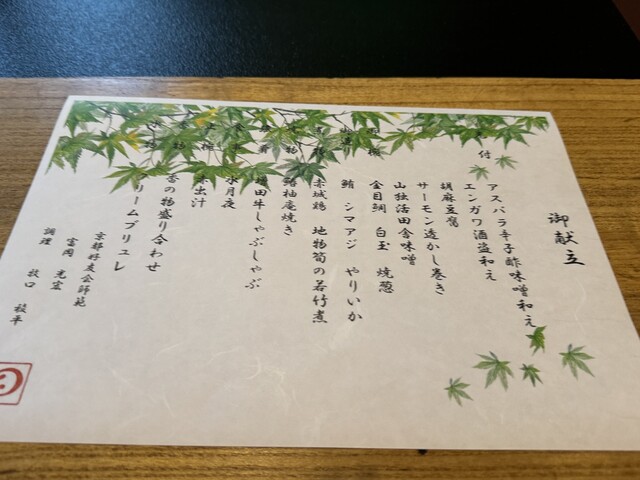 御献立
付
アスパラ辛子酢味噌和え
エンガワ酒盗和え
胡麻豆腐
サーモン透かし巻き
山独活田舎味噌
金目鯛 白玉 焼葱
鮪 シマアジ やりいか
赤城鶏 地物筍の若竹煮
柚庵焼き
田牛しゃぶしゃぶ
水月夜
赤出汁
香の物盛り合わせ
クリームブリュレ
京都好友会師範
調理